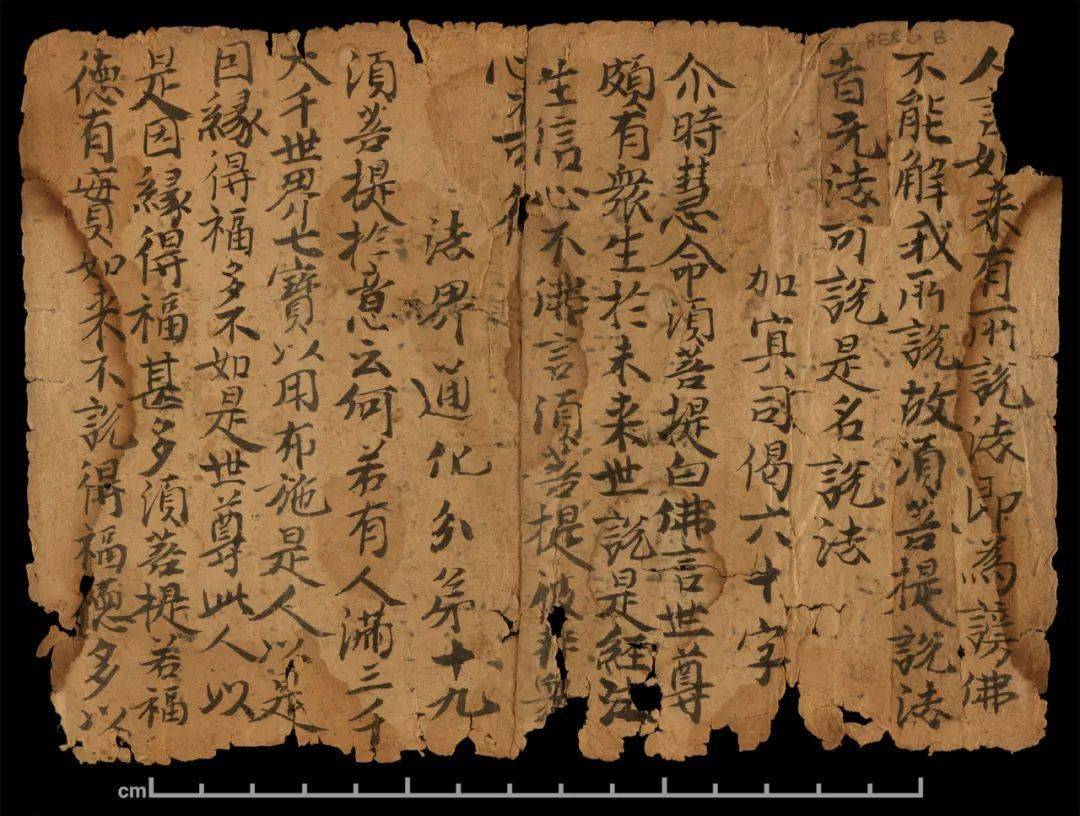 8585 B
人言如来有所說法即為謗佛
不能解我所說故須菩提說法
者无法可說是名說法
加冥司偈六十字
尒時慧命須菩提白佛言世尊
頗有衆生於未来世說是經法
生信心不佛言須菩提彼非衆
心不可得
法界通化分第十九
須菩提於意云何若有人滿三千
大千世界七寶以用布施是人以是
因緣得福多不如是世尊此人以
是因緣得福甚多須菩提若福
德有實如来不說得福德多以
cm